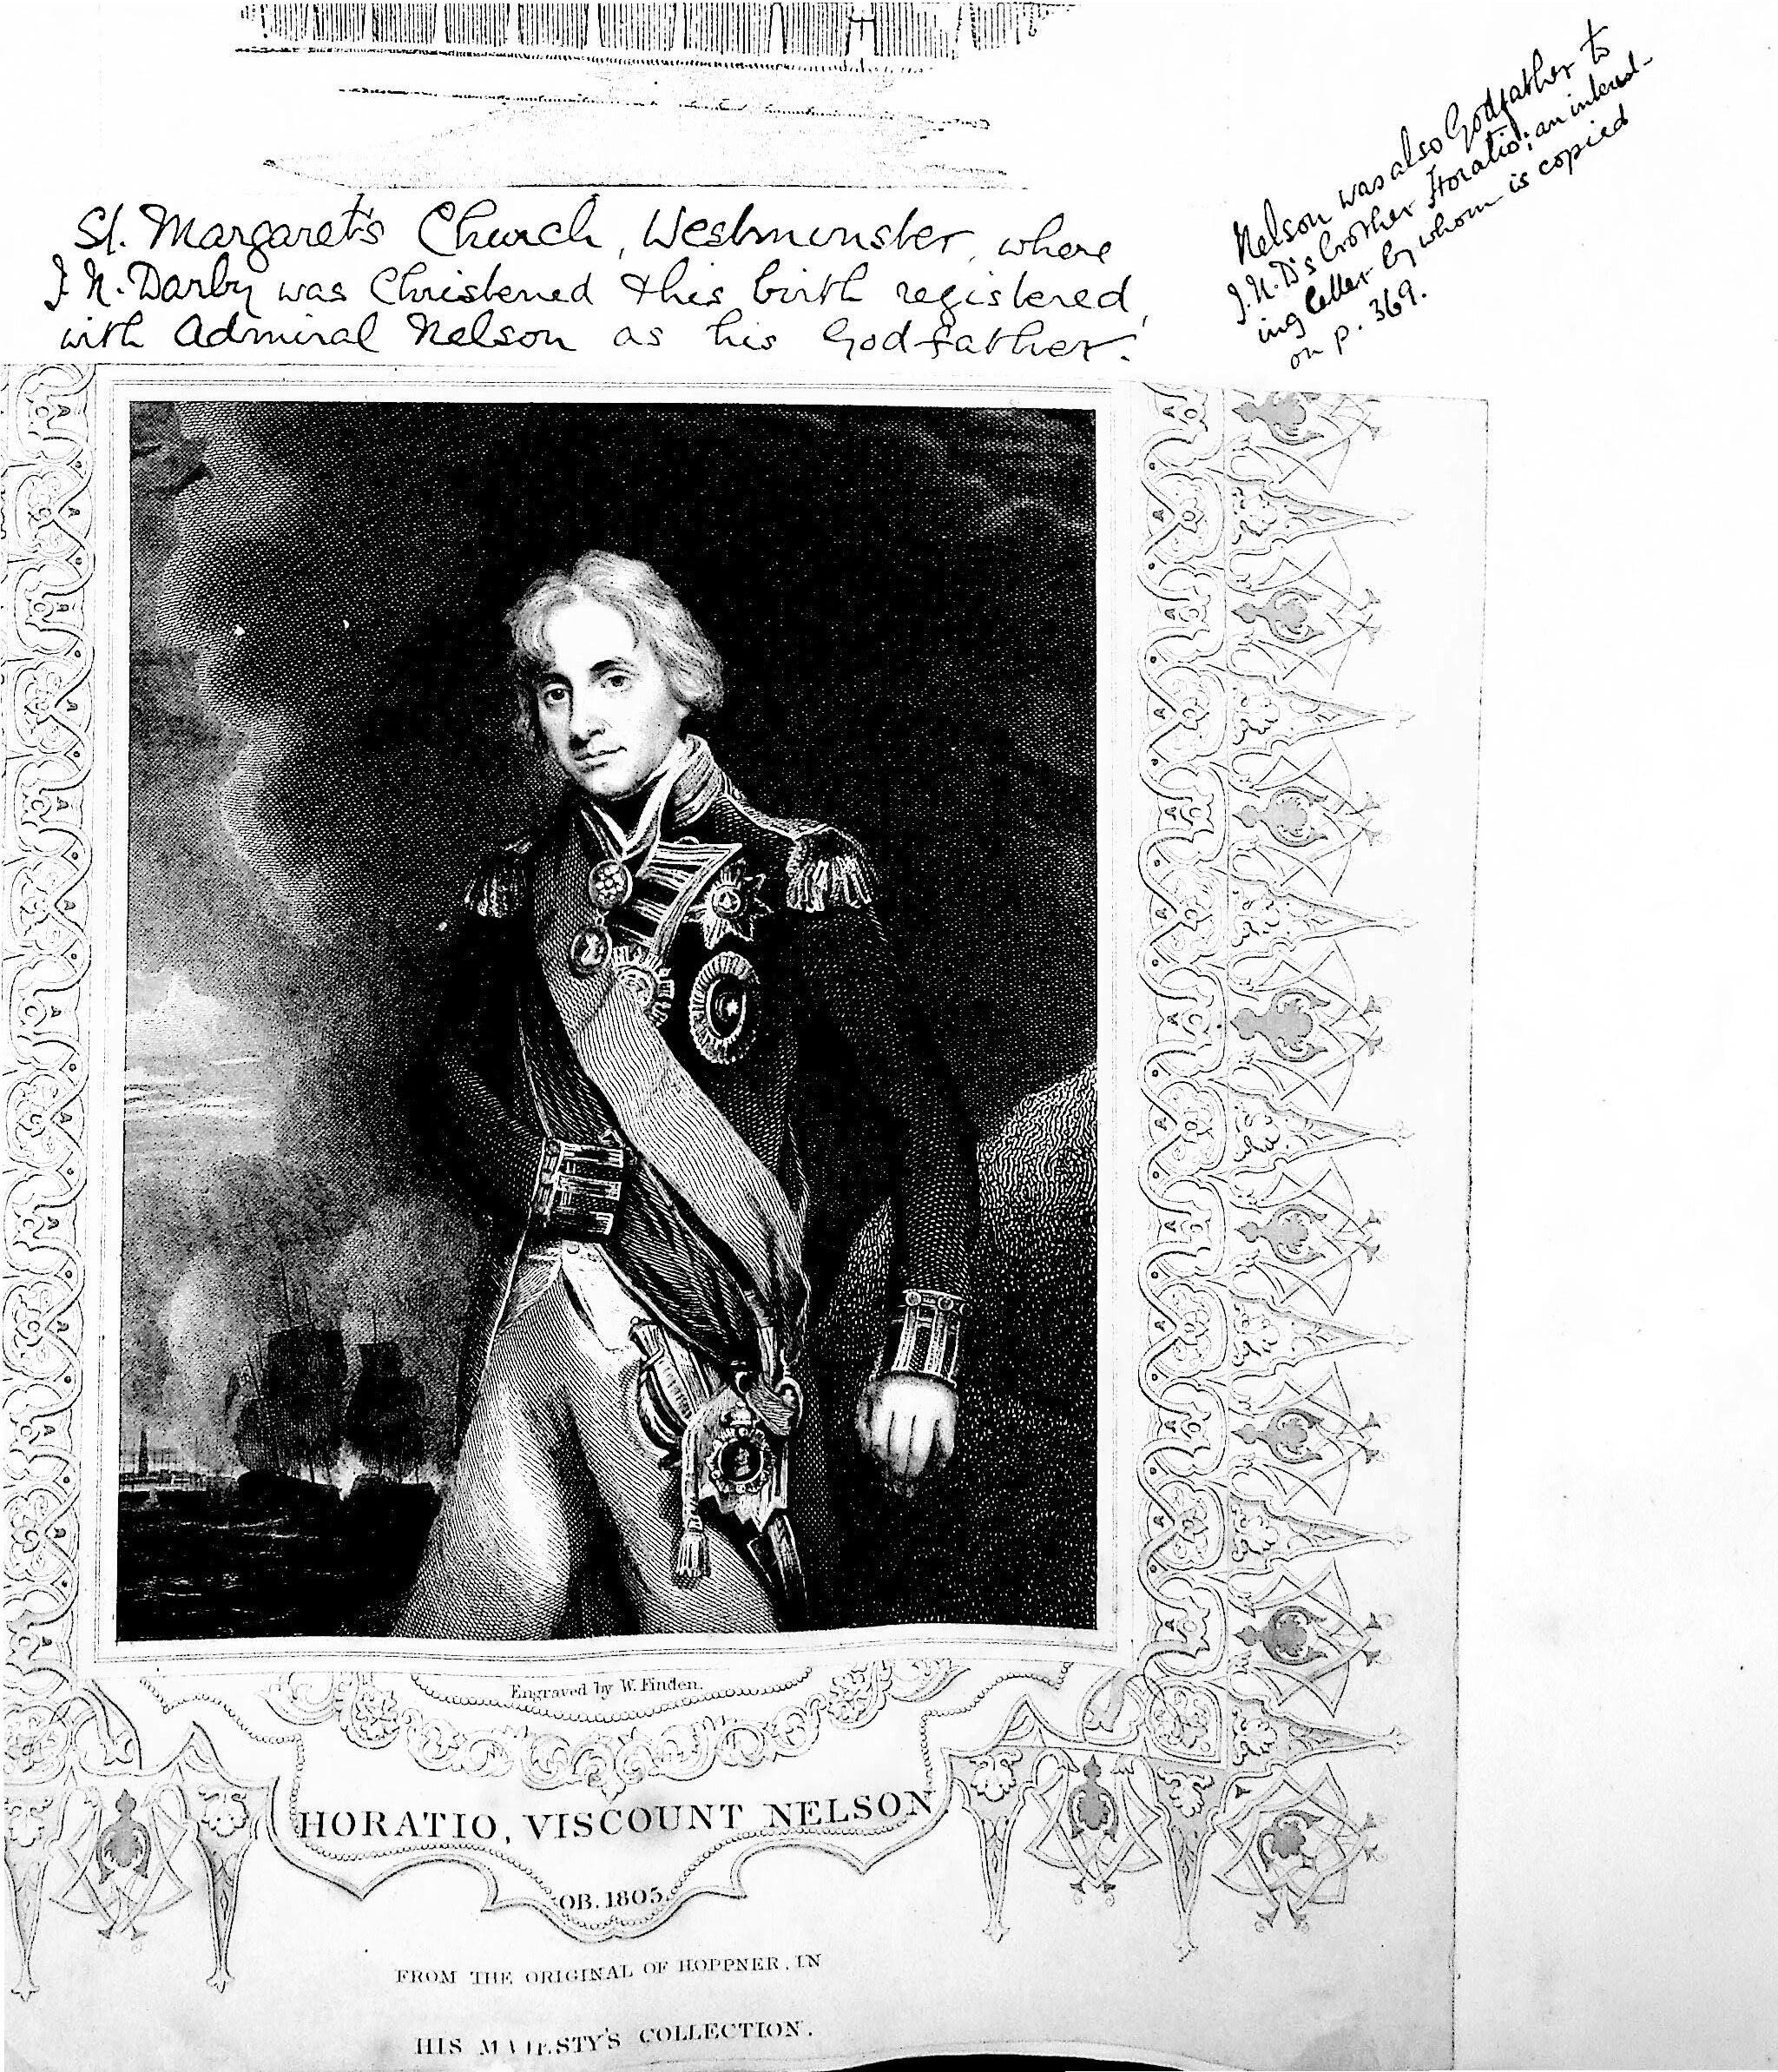 St. Margaret's Church, Westminster, where
J. N. Darby was Christened & his birth registered,
with Admiral Nelson as his Godfather.
Nelson was also Godfather to
J.N.D's brother Horatio; an interest-
ing letter by whom is copied
on p. 369.
Engraved by W. Finden.
HORATIO, VISCOUNT NELSON.
OB. 1805.
FROM THE ORIGINAL OF HOPPNER, IN
HIS MAJESTY'S COLLECTION.